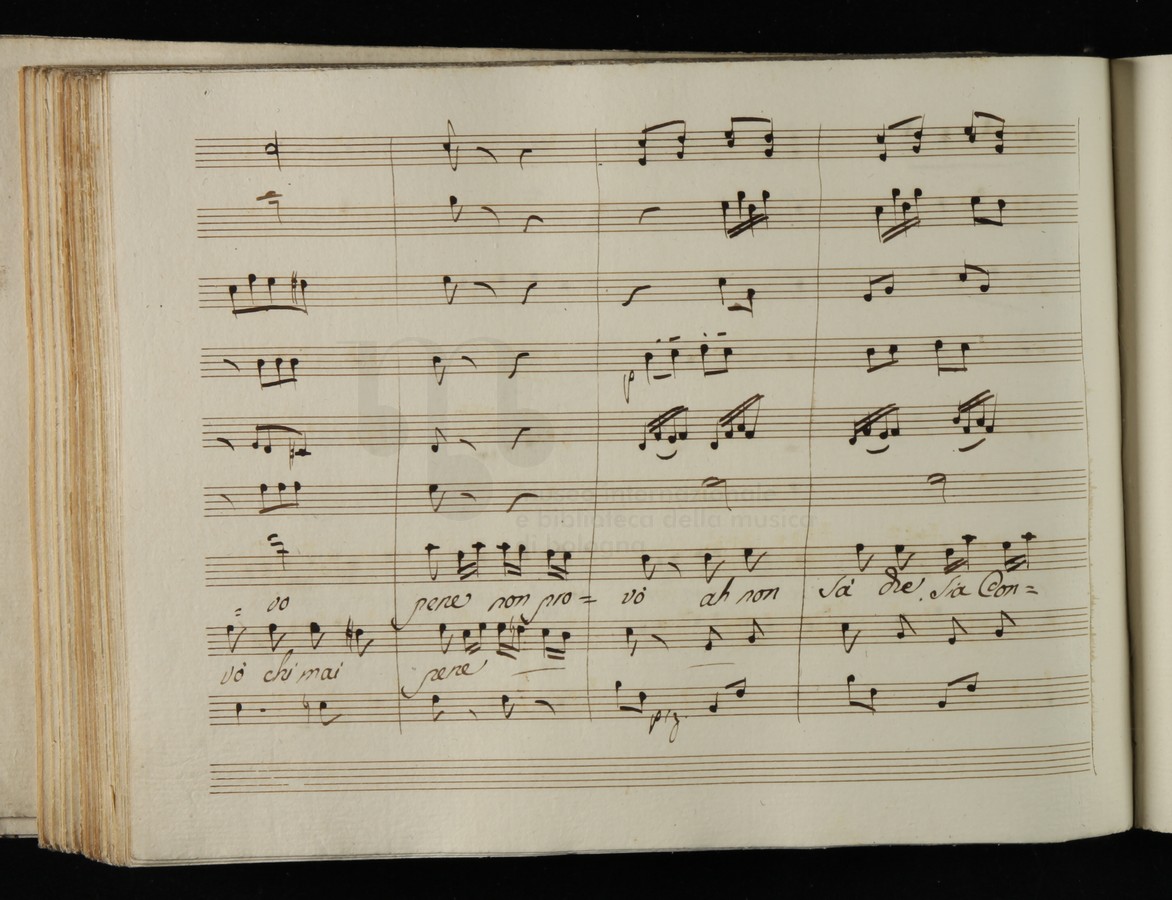 p
museo internazionale
e biblioteca della musica
di bologna
= vo pene non pro= vò ah non sà che sia Con=
vò chi mai pene
piz.